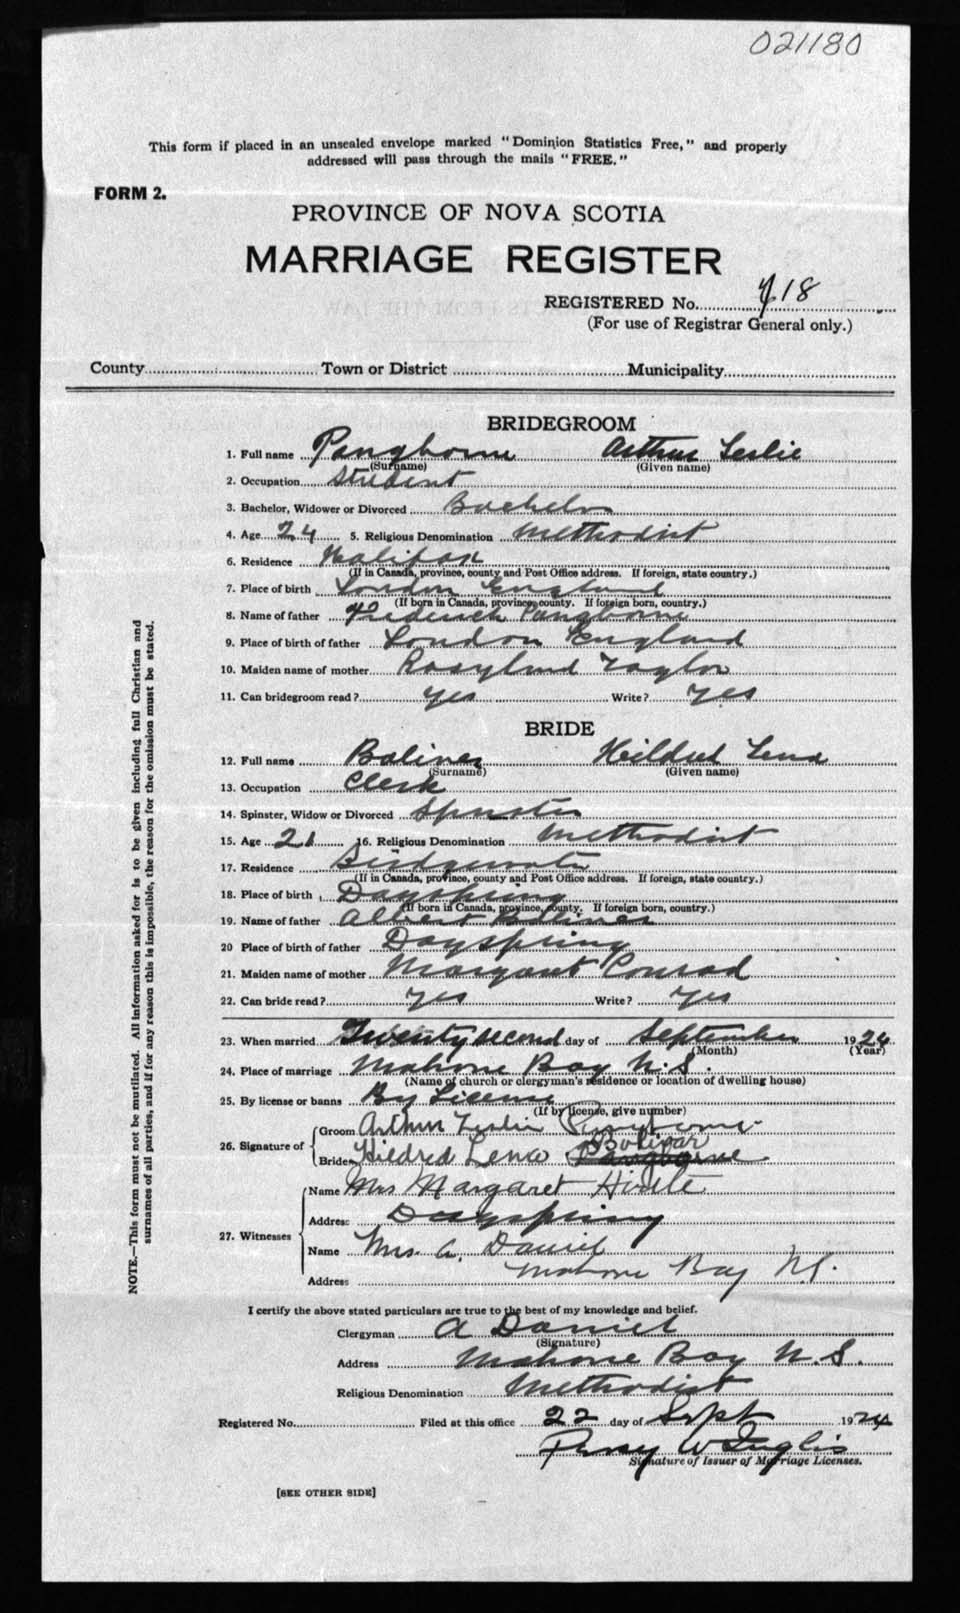 021180
This form if placed in an unsealed envelope marked "Dominion Statistics Free," and properly
addressed will pass through the mails "FREE."
FORM 2.
PROVINCE OF NOVA SCOTIA
MARRIAGE REGISTER
REGISTERED No. 718
(For use of Registrar General only.)
County Town or District Municipality
BRIDEGROOM
1. Full name Pangborne Arthur Leslie
(Surname) (Given name)
2. Occupation Student
3. Bachelor, Widower or Divorced Bachelor
4. Age 24 5. Religious Denomination Methodist
6. Residence Halifax
(If in Canada, province, county and Post Office address. If foreign, state country.)
7. Place of birth London England
(If born in Canada, province, county. If foreign born, country.)
8. Name of father Frederick Pangborne
9. Place of birth of father London England
10. Maiden name of mother Rosylind Taylor
11. Can bridegroom read? yes Write? yes
BRIDE
12. Full name Boliver Heildred Lena
(Surname) (Given name)
13. Occupation Clerk
14. Spinster, Widow or Divorced Spinster
15. Age 21 16. Religious Denomination Methodist
17. Residence Bridgewater
(If in Canada, province, county and Post Office address. If foreign, state country.)
18. Place of birth Dayspring
(If born in Canada, province, county. If foreign born, country.)
19. Name of father Albert Boliver
20 Place of birth of father Dayspring
21. Maiden name of mother Margaret Conrad
22. Can bride read? yes Write? yes
23. When married Twenty second day of September 1924
(Month) (Year)
24. Place of marriage Mahone Bay N.S.
(Name of church or clergyman's residence or location of dwelling house)
25. By license or banns By License
(If by license, give number)
26. Signature of Groom Arthur Leslie Pangborne
Bolivar
Bride Hildred Lena Pangborne.
27. Witnesses Name Mrs Margaret Hirtle
Address Dayspring
Name Mrs. A. Daniel
Address Mahone Bay N.S.
I certify the above stated particulars are true to the best of my knowledge and belief.
Clergyman A Daniel
(Signature)
Address Mahone Bay N.S.
Religious Denomination Methodist
Registered No. Filed at this office 22 day of Sept 1924
Percy W Inglis
Signature of Issuer of Marriage Licenses.
[SEE OTHER SIDE]
NOTE.—This form must not be mutilated. All information asked for is to be given including full Christian and
surnames of all parties, and if for any reason this is impossible, the reason for the omission must be stated.